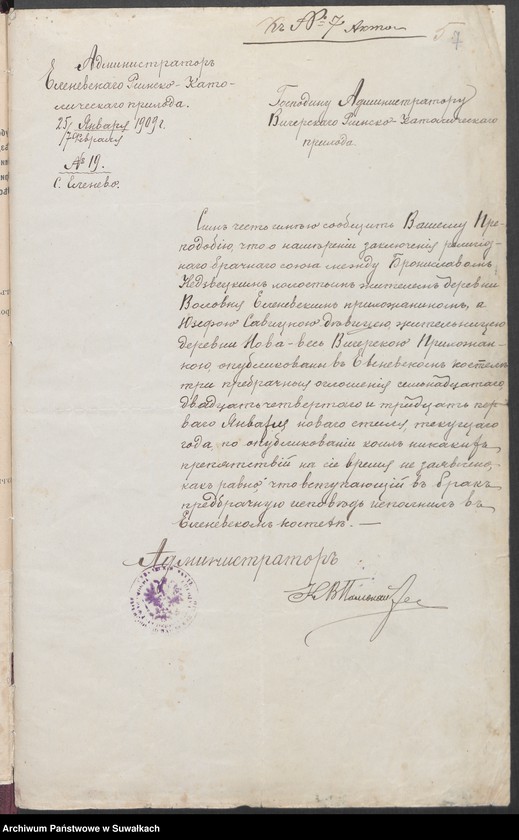 Къ № 7 Акта
Администраторъ
Еленевскаго Римско-Като-
лическаго прихода.
25/7 Января/Февраля 1909 г.
№ 19.
с. Еленево.
Господину Администратору
Вигерскаго Римско-Католическаго
прихода
Симъ честь имѣю сообщить Вашему Пре-
подобію, что о намѣреніи заключенія религіоз-
наго брачнаго союза между Брониславомъ
Недзвецкимъ холостымъ жителемъ деревни
Воловня Еленевскимъ прихожаниномъ, а
Юзефою Савицкою дѣвицею, жительницею
деревни Нова-весь Вигерскою Прихожан-
кою, опубликованы въ Еленевскомъ костелѣ
три предбрачныя оглашенія семнадцатаго
двадцать четвертаго и тридцать пер-
ваго Января новаго стиля текущаго
года, по опубликованіи коихъ никакихъ
препятствій на сіе время не заявлено,
какъ равно, что вступающій въ бракъ
предбрачную исповѣдь исполнилъ въ
Еленевскомъ костелѣ. —
Администраторъ
Archiwum Państwowe w Suwałkach